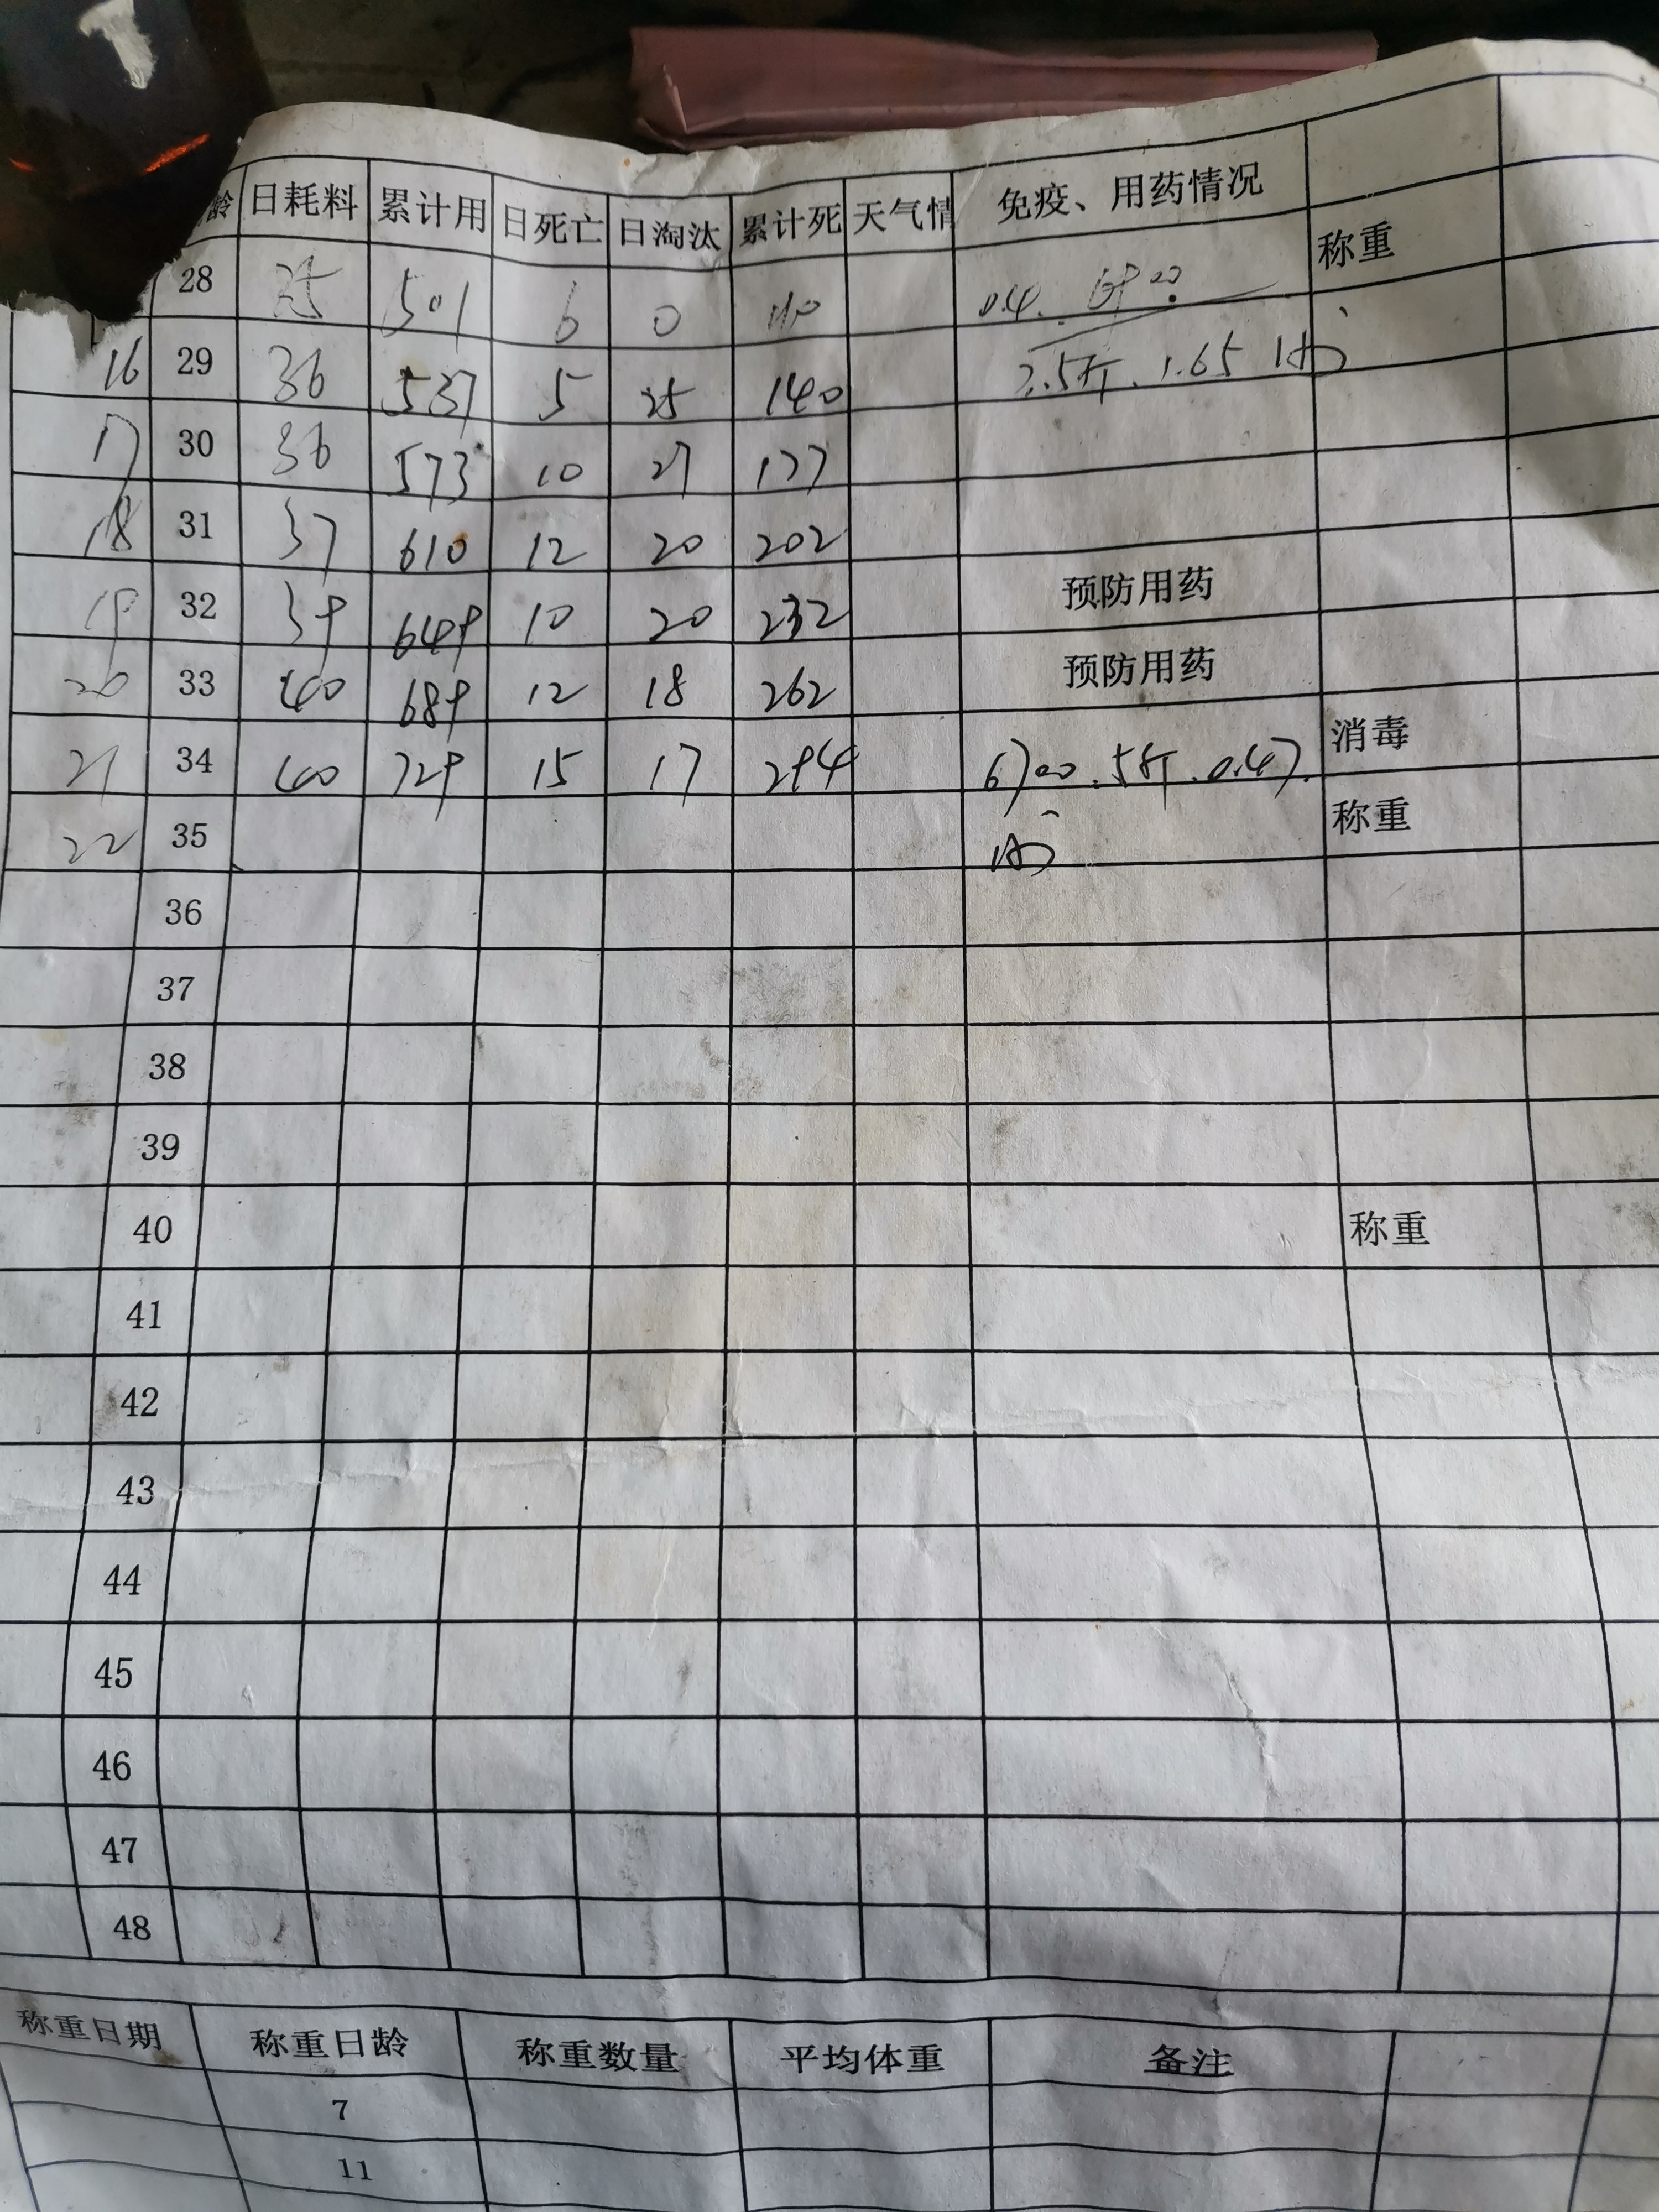 龄 日耗料 累计用 日死亡 日淘汰 累计死 天气情 免疫、用药情况
28 35 501 6 0 110 称重
16 29 36 537 5 25 140 2.5斤. 1.65
17 30 36 573 10 27 177
18 31 37 610 12 20 202
19 32 39 649 10 20 232 预防用药
20 33 40 689 12 18 262 预防用药
21 34 40 729 15 17 294 6700.5斤.0.47. 消毒
22 35 称重
36
37
38
39
40 称重
41
42
43
44
45
46
47
48
称重日期 称重日龄 称重数量 平均体重 备注
7
11